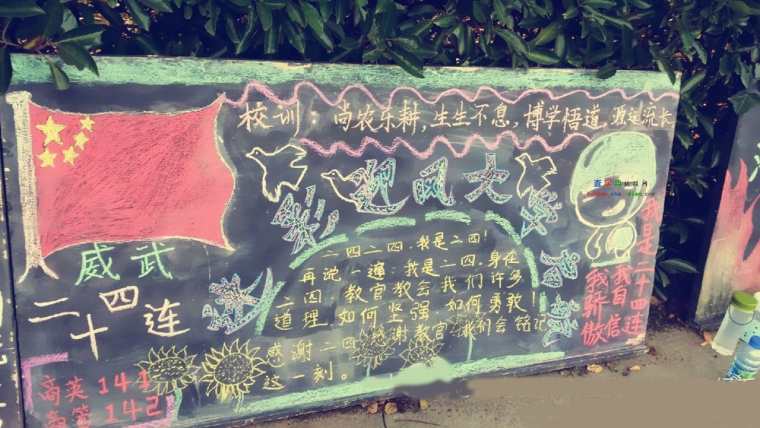 校训:尚农乐耕,生生不息,博学悟道,源远流长
彩 迎风大
威武
二十四连
二四二四,我是二四!
再说一遍:我是二四,身在
二四,教官教会我们许多
道理,如何坚强,如何勇敢!
感谢二四,感谢教官,我们会铭记
这一刻。
我是二十四连
我自信
我骄傲
商英 141
商英 142